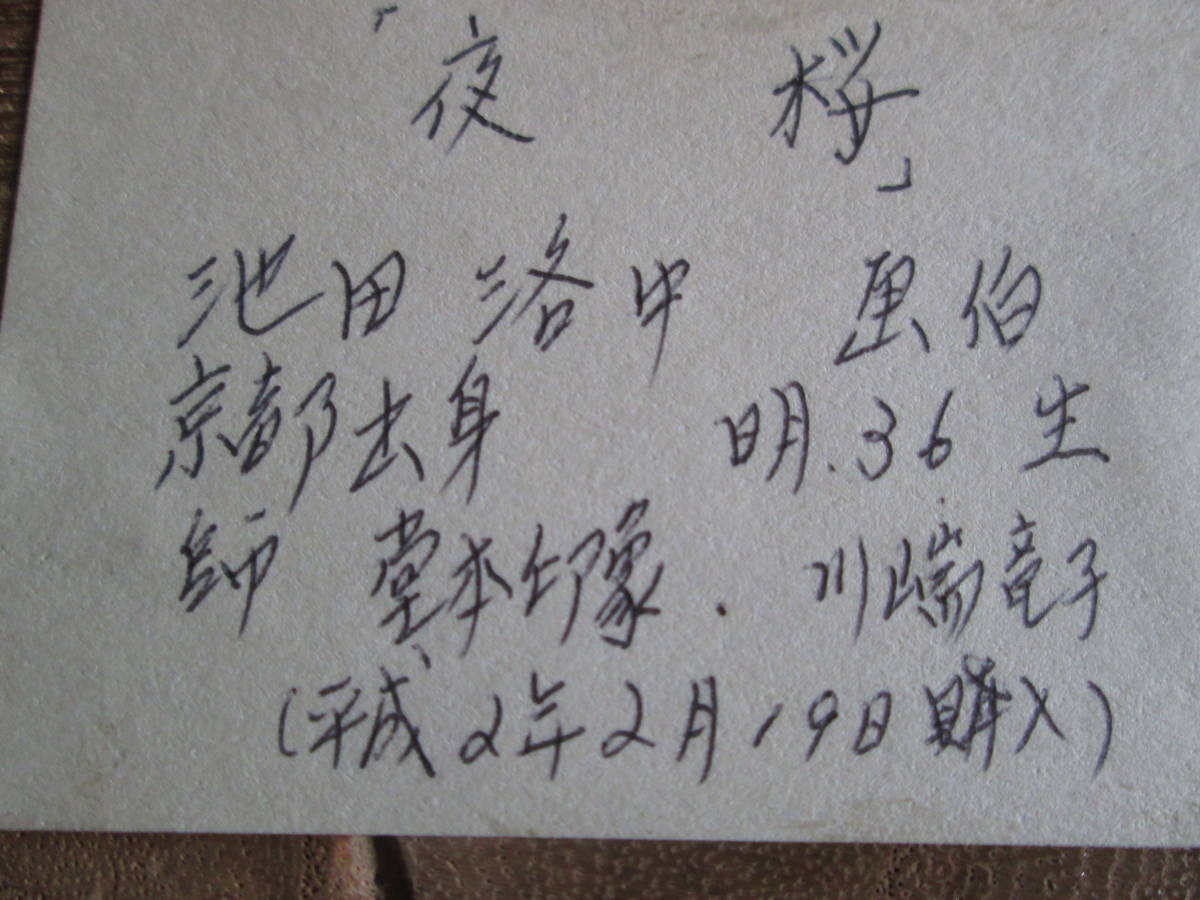 「夜 桜」
池田洛中 画伯
京都出身 明.36生
師 堂本印象.川端竜子
(平成2年2月19日購入)